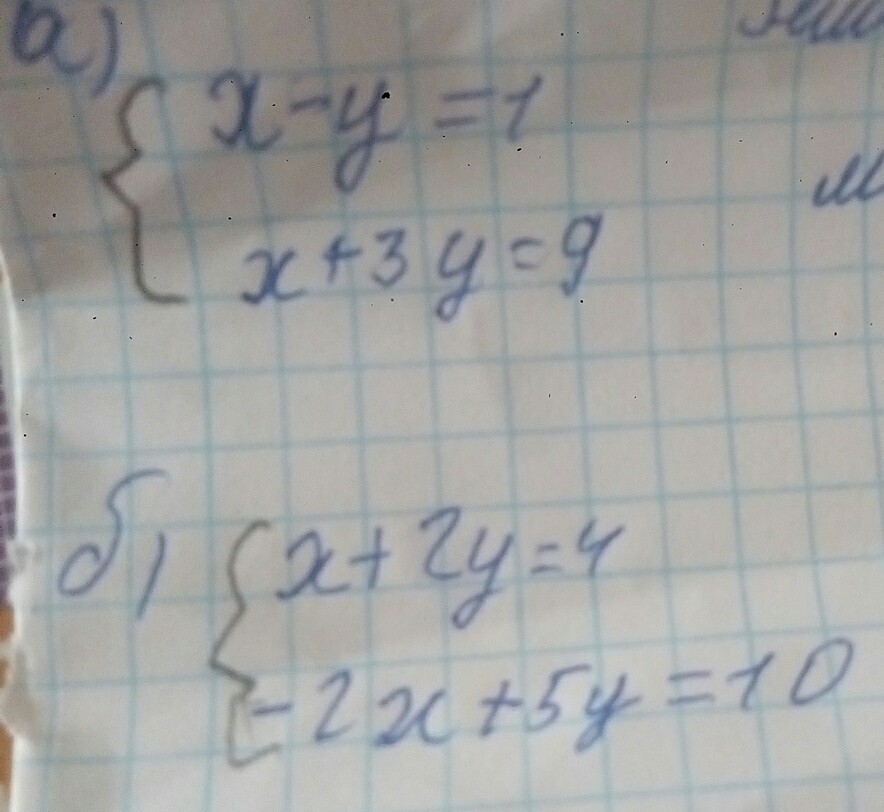 а)
x-y=1
x+3y=9
б)
x+2y=4
-2x+5y=10